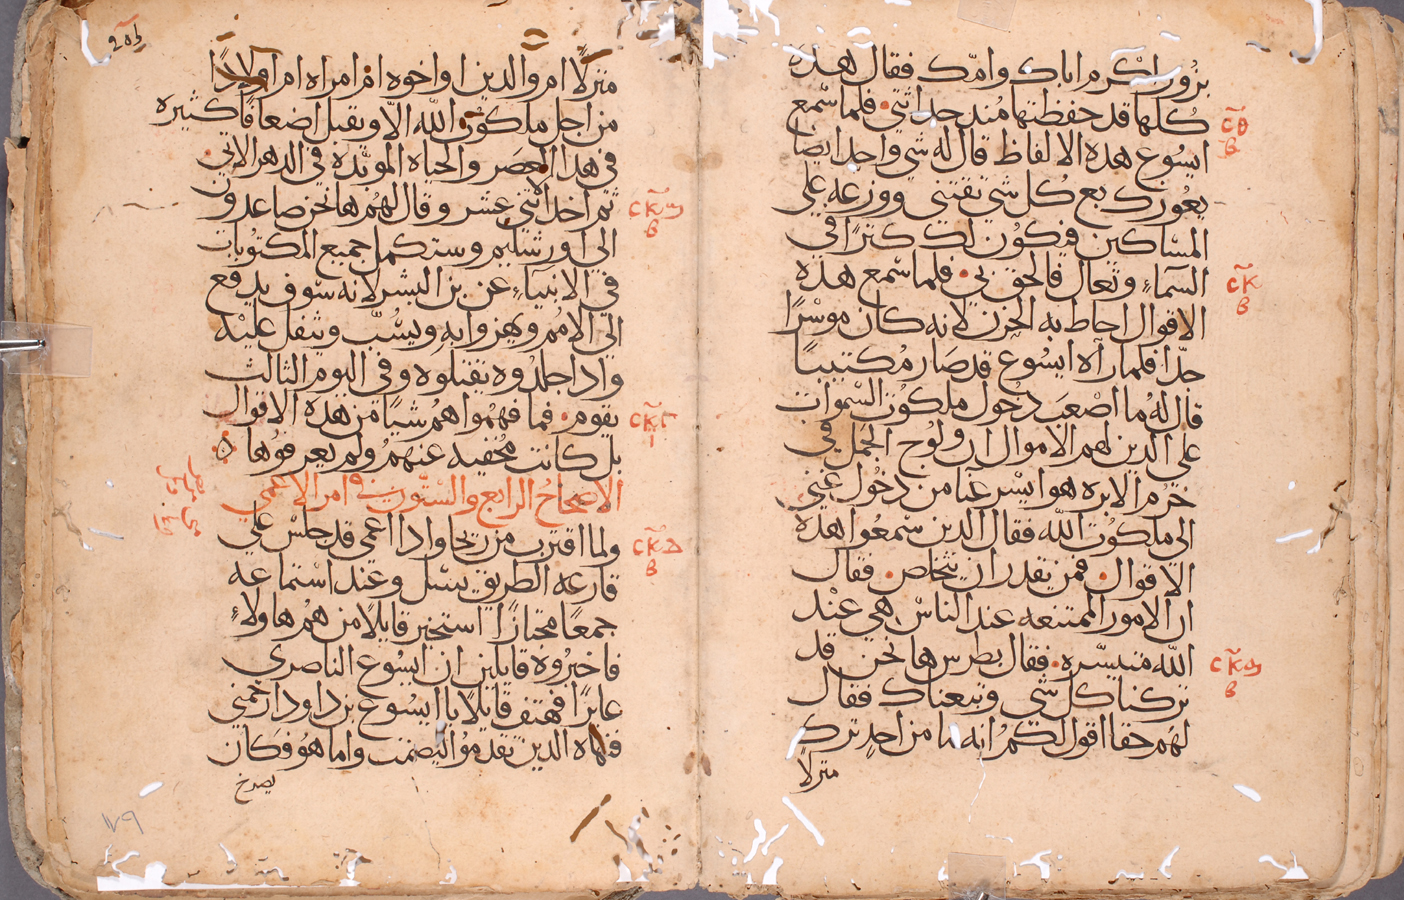 بزور اكرم اباك وامك فقال هذه
كلها قد حفظتها مند حداثتي فلما سمع
ايسوع هده الالفاظ قال له شي واحد ايضا
يعوزك بع كل شي تقتني ووزعه علي
المساكين فيكون لك كنزًا في
السماء وتعال فالحق بي فلما سمع هده
الاقوال احاط به الحزن لانه كان موسرًا
جدًا فلما راه ايسوع قد صار مكتيبًا
قال له ما اصعب دخول ملكوت السموات
علي الدين لهم الاموال ان ولوج الجمل في
خرم الابره هو ايسر عبًا من دخول غني
الي ملكوت الله فقال الدين سمعوا هده
الاقوال فمن يقدر ان يتخلص فقال
ان الامور الممتنعه عند الناس هي عند
الله متيسره فقال بطرس ها نحن قد
تركنا كل شي وتبعناك فقال
لهم حقا اقول لكم انه ما من احد ترك
منزلا
c̄ѳ
в
c̄к
в
منزلًا ام والدين او اخوه ام امراه ام اولادًا
من اجل ملكوت الله الا ويقبل اضعافًا كثيره
في هدا العصر والحياه الموبده في الدهر الاتي
ثم اخد اثني عشر وقال لهم ها نحن صاعدون
الي اورشليم وستكمل جميع المكتوبات
في الانبياء عن بن البشر لانه سوف يدفع
الي الامم ويهزوا به ويسب ويتفل عليه
وادا جلدوه يقتلوه وفي اليوم الثالث
يقوم فما فهموا هم شيًا من هده الاقوال
بل كانت مخفيه عنهم ولم يعرفوها
الاصحاح الرابع والستون في امر الاعمي
ولما اقترب من ريحا وادا اعمي قد جلس علي
قارعه الطريق يتسل وعند استماعه
جمعًا مجتازًا استخبر قايلًا من هم هاولاء
فاخبروه قايلين ان ايسوع الناصري
عابرًا فهتف قايلًا يا ايسوع بن داود ارحمني
فنهاه الدين تقدموا ليصمت واما هو فكان
يصرخ
١٧٩